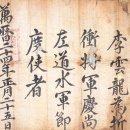 李雲龍為折
衝將軍慶尚
左道水軍節
度使者
萬曆二十四年五月二十五日